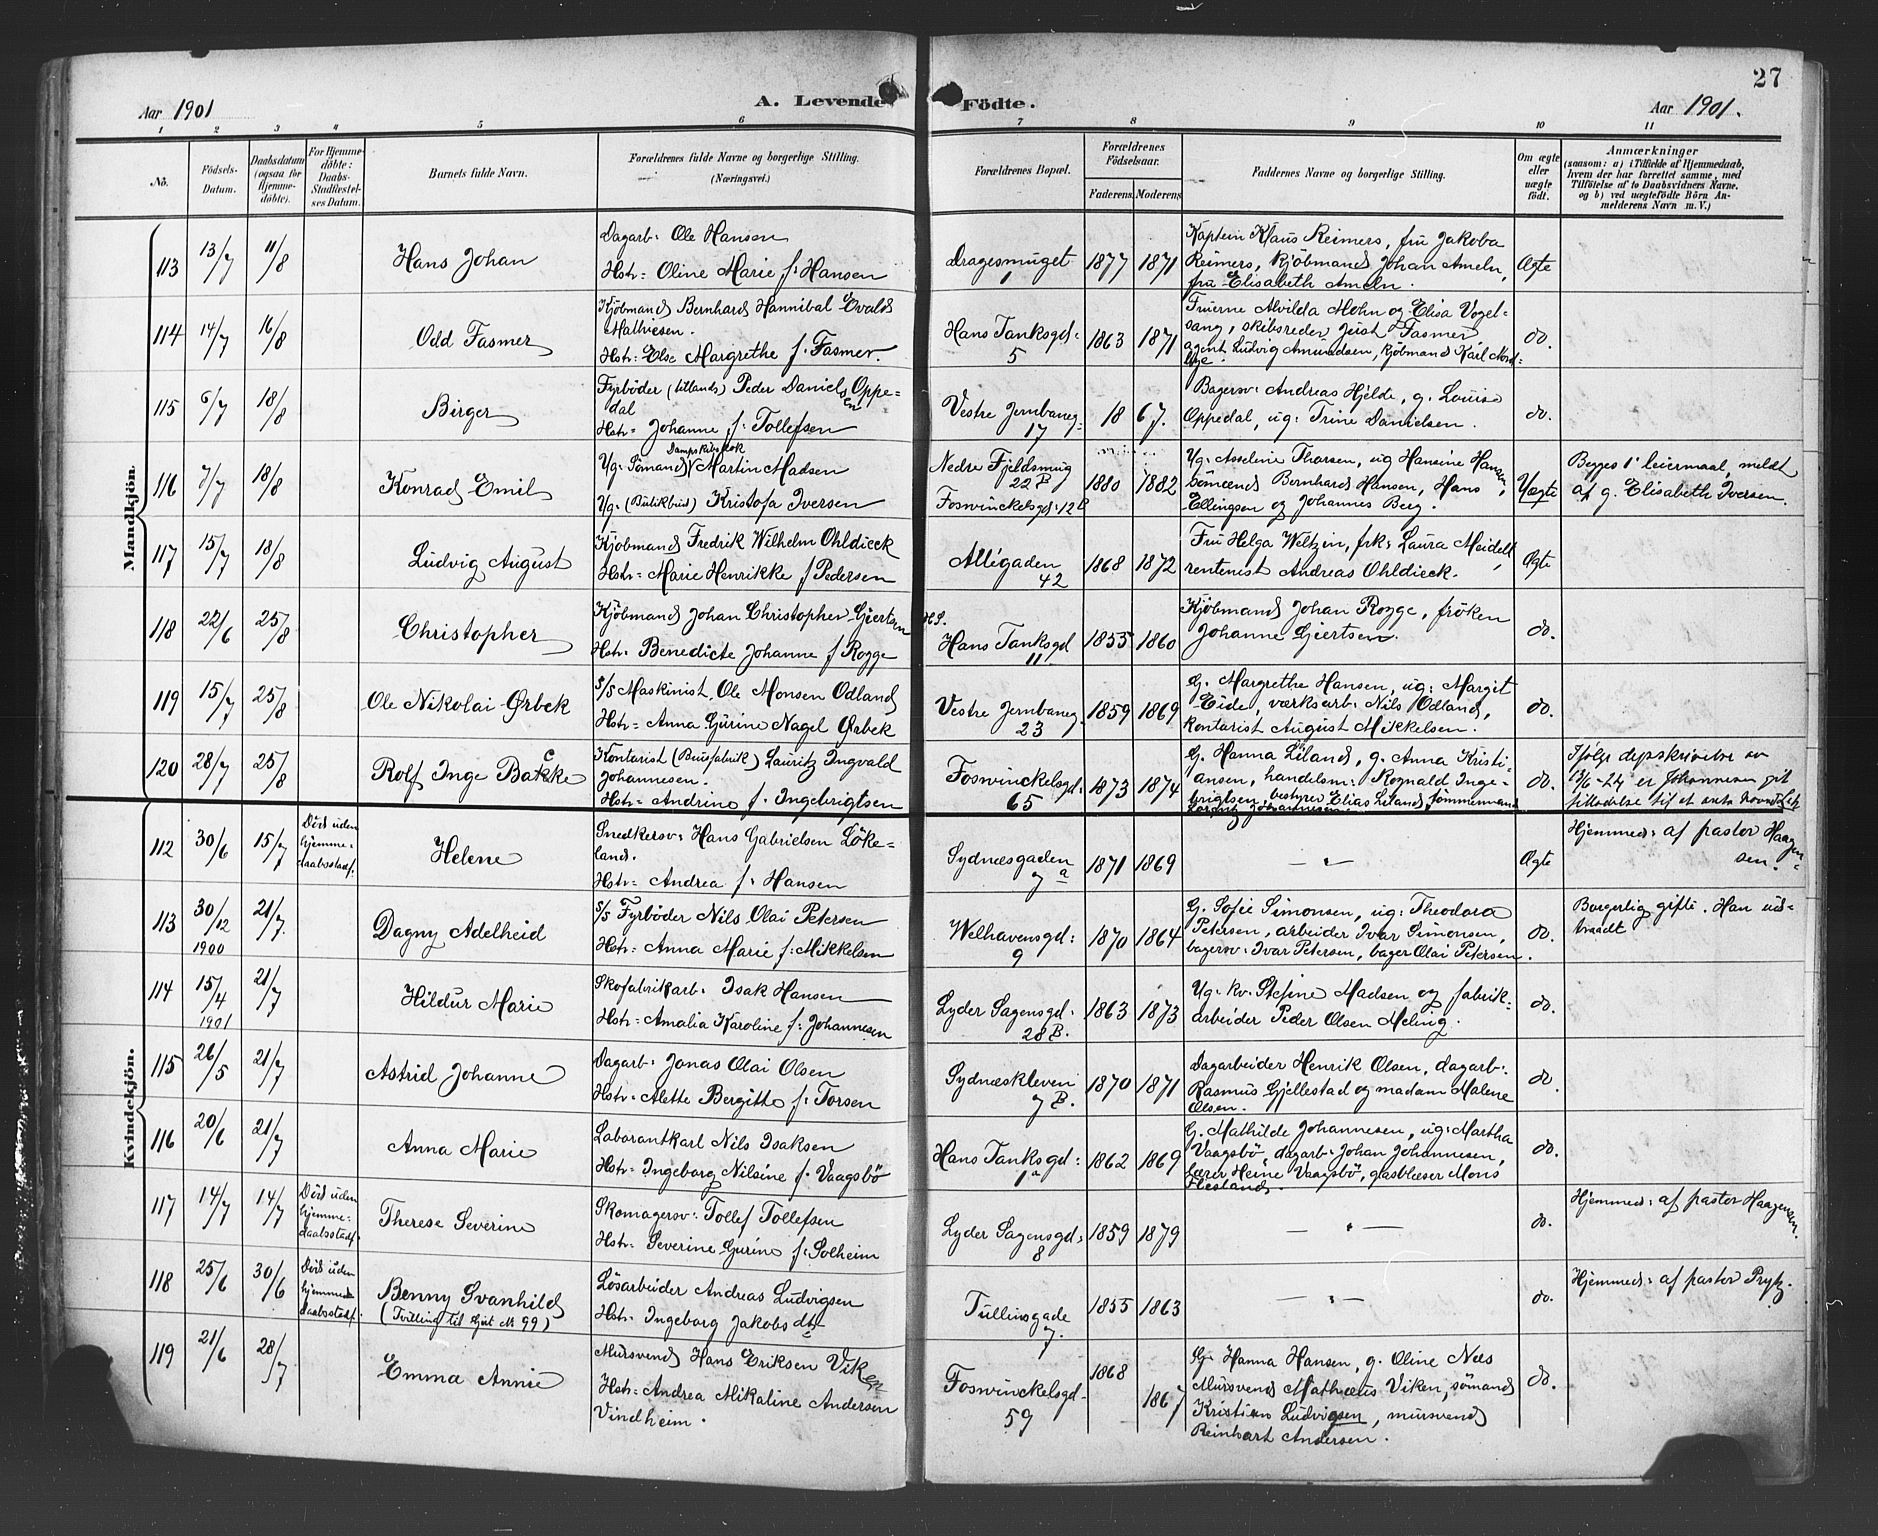 27
Aar 1901
A. Levende Födte.
Aar 1901.
1 2 3 4 5 6 7 8 9 10 11
No.
Födsels-
Datum.
Daabsdatum
(ogsaa for
Hjemme-
döbte).
For Hjemme-
döbte:
Daabs-
Stadfæstel-
ses Datum.
Barnets fulde Navn.
Forældrenes fulde Navne og borgerlige Stilling.
(Næringsvei.)
Forældrenes Bopæl.
Forældrenes
Födselsaar.
Faderens. Moderens.
Faddernes Navne og borgerlige Stilling.
Om ægte
eller
uægte
födt.
Anmærkninger
(saasom: a) i Tilfælde af Hjemmedaab,
hvem der har forrettet samme, med
Tilföielse af to Daabsvidners Navne.
og b) ved uægtefödte Börn An-
melderens Navn m. V.)
Mandkjön.
113 13/7 11/8
Hans Johan
Dagarb: Ole Hansen
Hstr: Oline Marie f: Hansen
Dragesmuget
1
1877 1871
Kaptein Klaus Reimers, fru Jakoba
Reimers, Kjöbmand Johan Ameln,
fru Elisabeth Ameln.
Ægte
114 14/7 16/8
Odd Fasmer
Kjöbmand Bernhard Hannibal Evald
Mathiesen.
Hstr: Else Margrethe f. Fasmer.
Hans Tanksgd:
5
1863 1871
Fruerne Alvilda Mohn og Elisa Vogel-
sang, skibsreder Just Fasmer,
agent Ludvig Amundsen, Kjöbmand Karl
do.
115 6/7 18/8
Birger
Fyrböder (Utlands) Peder Danielsen Oppe-
dal
Hstr: Johanne f: Tollefsen
Vestre Jernbaneg:
17
18 67.
Bagersv: Andreas Hjelde, g. Louise
Oppedal, ug: Trine Danielsen.
do.
116 7/7 18/8
Konrad Emil
Dampskibskok
Ug: Sömand Martin Madsen
Ug: (Butikbud) Kristofa Iversen
Nedre Fjeldsmug
22 B
Fosvinckelsgd: 12
1880 1882
Ug: Asseline Tharsen, ug Hansine Hansen,
Sömænd Bernhard Hansen, Hans
Ellingsen og Johannes Berg.
Uægte
Begges 1' leiermaal, meldt
af g. Elisabeth Iversen.
117 15/7 18/8
Ludvig August
Kjöbmand Fredrik Wilhelm Ohldieck
Hstr: Marie Henrikke f Pedersen
Allégaden
42
1868 1872
Fru Helga Weltzin, frk: Laura Meidell,
rentenist Andreas Ohldieck.
Ægte
118 22/6 25/8
Christopher
Kjöbmand Johan Christopher Giertsen
Hstr: Benedicte Johanne f Rogge
Hans Tanksgd
11
1855 1860
Kjöbmand Johan Rogge, fröken
Johanne Giertsen.
do.
119 15/7 25/8
Ole Nikolai Ørbek
S/S Maskinist Ole Monsen Odland
Hstr: Anna Gurine Nagel Ørbek
Vestre Jernbaneg.
23
1859 1869
G. Margrethe Hansen, ug: Margit
Eide, værksarb: Nils Odland,
Kontorist August Mikkelsen.
do.
120 28/7 25/8
Rolf Inge Bakke
Kontorist (Buefabrik) Lauritz Ingvald
Johannesen.
Hstr: Andrine f. Ingebrigtsen
Fosvinckelsgd:
65
1873 1874
G. Hanna Liland, g. Anna Kristi-
ansen, handelsm: Rognald Inge-
brigtsen, bestyrer Elias Liland, tömmermand
Lorentz Johannesen
do.
Ifölge depskrivelse av
13/6-24 er Johannesen git
tilladelse til at anta navnet
Kvindekjön.
112 30/6 15/7
Död uden
hjemme-
daabsstadf.
Helene
Snedkersv: Hans Gabrielsen Löke-
land.
Hstr: Andrea f: Hansen
Sydnæsgaden
7 a
1871 1869
— „ —
Ægte
Hjemmed: af pastor Haagen-
sen.
113 30/12 1900 21/7
Dagny Adelheid
S/S Fyrböder Nils Olai Petersen
Hstr: Anna Marie f: Mikkelsen
Welhavensgd:
9
1870 1864
G. Sofie Simonsen, ug: Theodora
Petersen, arbeider Ivar Simonsen,
bagersv: Ivar Petersen, bager Olai Petersen.
do.
Borgerlig gifte. Han ud-
traadt
114 15/4 1901 21/7
Hildur Marie
Skofabrikarb: Isak Hansen
Hstr: Amalia Karoline f: Johannesen
Lyder Sagensgd:
28 B.
1863 1873
Ug: kv: Stefine Madsen og fabrik-
arbeider Peder Olsen Meling.
do.
115 26/5 21/7
Astrid Johanne
Dagarb: Jonas Olai Olsen
Hstr: Alette Bergitte f: Torsen
Sydnæskleven
7 B.
1870 1871
Dagarbeider Henrik Olsen, dagarb:
Rasmus Gjellestad og madam Malene
Olsen.
do.
116 20/6 21/7
Anna Marie
Laborantkarl Nils Isaksen
Hstr: Ingeborg Nilsine f. Vaagsbö
Hans Tanksgd:
1a
1862 1869
G. Mathilde Johannesen, ug: Martha
Vaagsbö, dagarb: Johan Johannesen,
Lærer Heine Vaagsbö, glasblæser Mons
Flesland.
do.
117 14/7 14/7
Död uden
hjemme-
daabsstadf.
Therese Severine
Skomagersv: Tollef Tollefsen
Hstr: Severine Gurine f: Solheim
Lyder Sagensgd:
8
1859 1879
— „ —
do.
Hjemmed: af pastor Haagensen.
118 25/6 30/6
Död uden
hjemme-
daabsstadf.
Benny Svanhild
(Tvilling til Gut № 99)
Lösarbeider Andreas Ludvigsen
Hstr: Ingeborg Jakobsdtr
Tullinsgade
7.
1855 1863
— „ —
do.
Hjemmed: af pastor Prytz.
119 21/6 28/7
Emma Annie
Mursvend Hans Eriksen Viken
Hstr: Andrea Mikaline Andersen
Vindheim.
Fosvinckelsgd.
59
1868 1867
G. Hanna Hansen, g. Oline Næs
Mursvend Mathæus Viken, sömand
Kristian Ludvigsen, mursvend
Reinhart Andersen.
do.